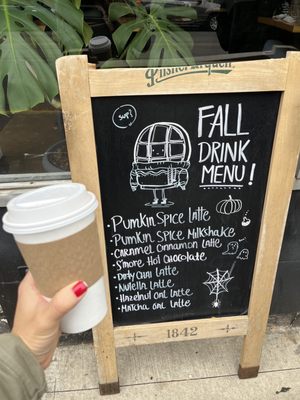 Pilsner Urquell
sup?
FALL
DRINK
MENU!
• Pumkin Spice Latte
• Pumkin Spice Milkshake
• Caramel Cinnamon Latte
• S'more Hot Chocolate
• Dirty Chai Latte
• Nutella Latte
• Hazelnut oat Latte
• Matcha oat Latte
1842